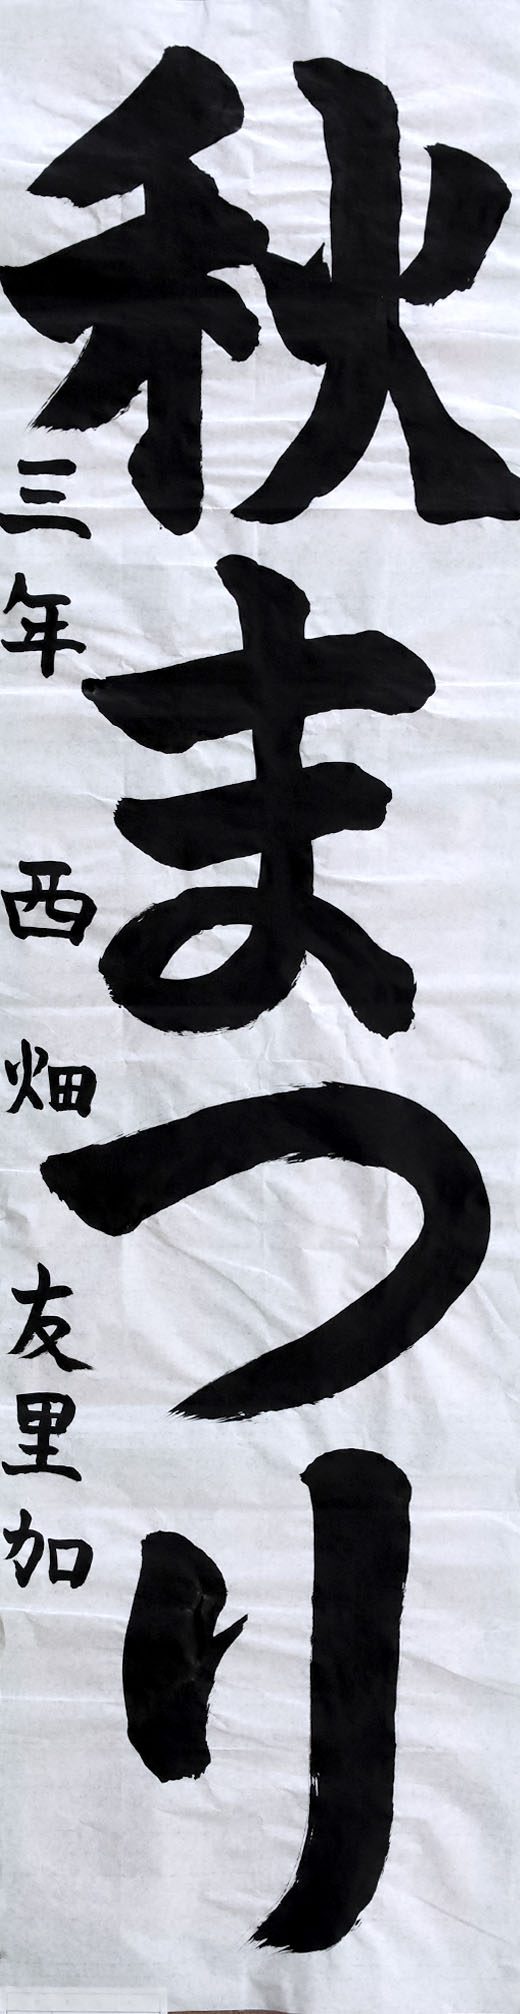 秋まつり
三年 西畑 友里加